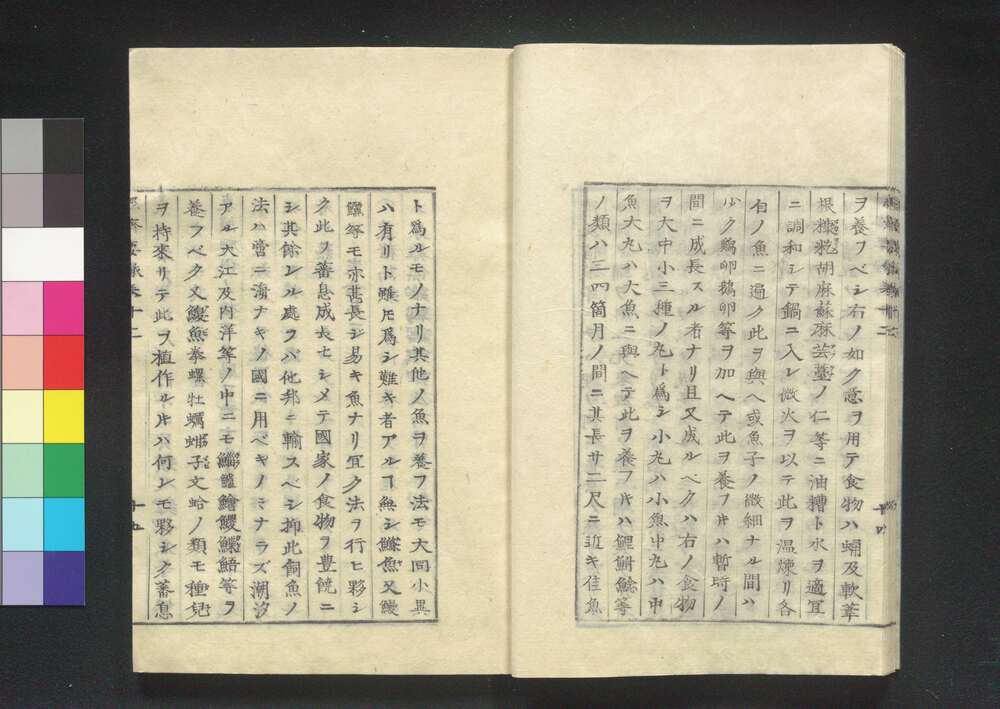 ヲ養フベシ右ノ如ク意ヲ用テ食物ハ蛹及軟葦
根糠粃胡麻蘇麻芸薹ノ仁等ニ油糟ト水ヲ適宜
ニ調和シテ鍋ニ入レ微火ヲ以テ此ヲ温煉リ各
自ノ魚ニ遍ク此ヲ與ヘ或魚子ノ微細ナル間ハ
少ク鶏卵鵝卵等ヲ加ヘテ此ヲ養フ片ハ暫時ノ
間ニ成長スル者ナリ且又成ルベクハ右ノ食物
ヲ大中小三種ノ丸ト爲シ小丸ハ小魚中丸ハ中
魚大丸ハ大魚ニ與ヘテ此ヲ養フ片ハ鯉鮒鯰等
ノ類ハ三四箇月ノ間ニ其長サ二尺ニ近キ佳魚
ト爲ルモノナリ其他ノ魚ヲ養フ法モ大同小異
ハ有リト雖モ爲シ難キ者アルヿ無シ鰱魚又鰻
鱺等モ亦甚長シ易キ魚ナリ宜ク法ヲ行ヒ夥シ
ク此ヲ蕃息成長セシメテ國家ノ食物ヲ豊饒ニ
シ其餘レル處ヲバ他邦ニ輸スベシ抑此飼魚ノ
法ハ啻ニ海ナキノ國ニ用ベキノミナラズ潮汐
アル大江及内洋等ノ中ニモ鯔鱸鱠鰻鰥鯃等ヲ
養フベク又鰒魚拳螺牡蠣蛤子文蛤ノ類モ種兒
ヲ持來リテ此ヲ植作ル片ハ何レモ夥シク蕃息
十四
十五